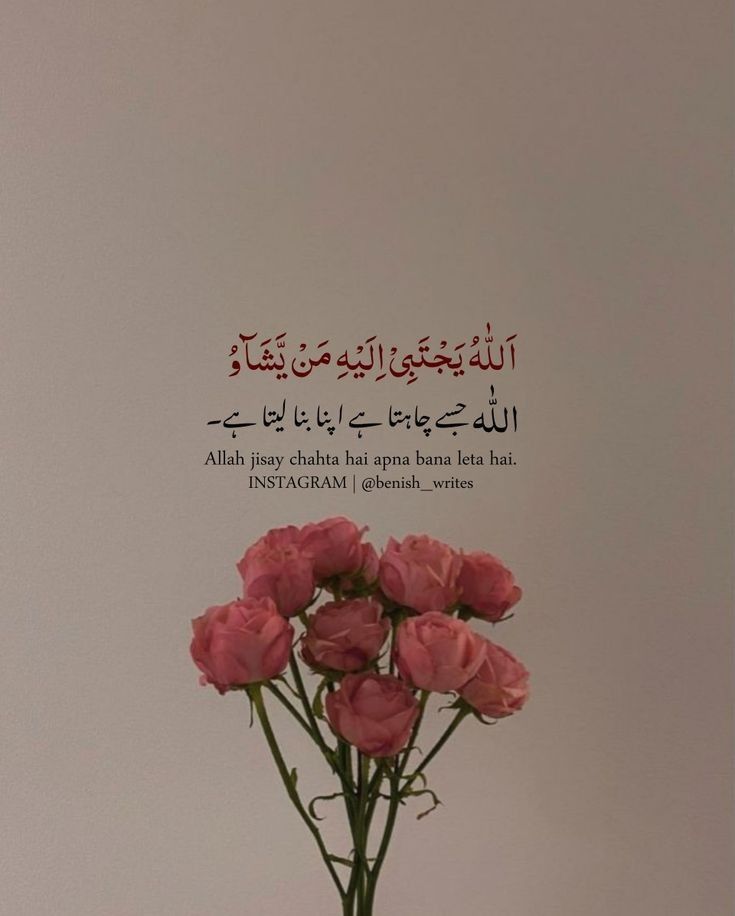 اَللّٰهُ يَجْتَبِيْٓ اِلَيْهِ مَنْ يَّشَآؤُ
اللّٰہ جسے چاہتا ہے اپنا بنا لیتا ہے۔
Allah jisay chahta hai apna bana leta hai.
INSTAGRAM | @benish__writes